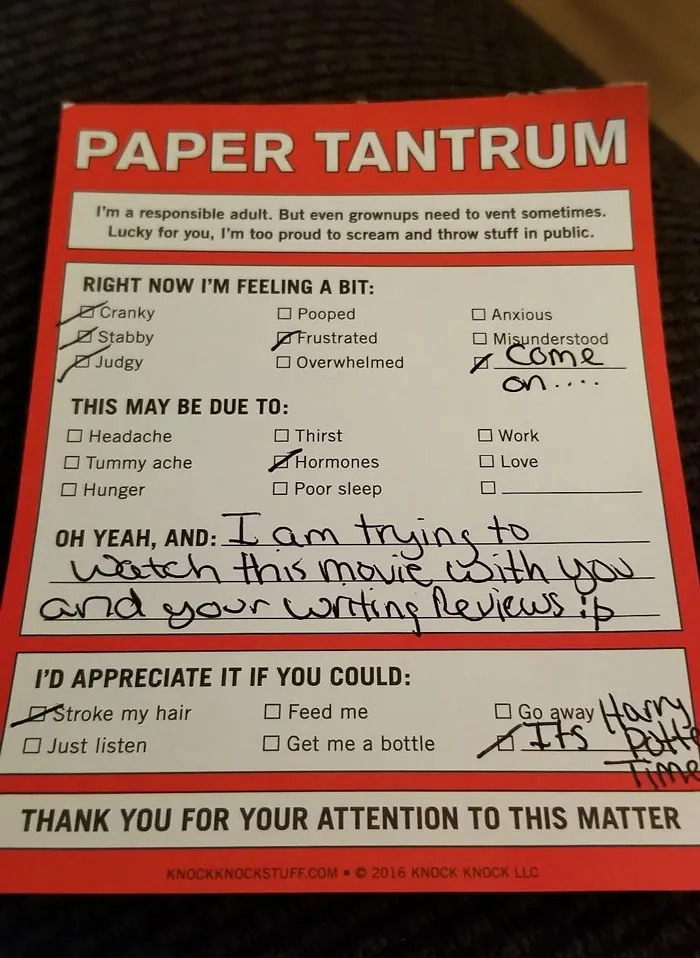 PAPER TANTRUM
I'm a responsible adult. But even grownups need to vent sometimes.
Lucky for you, I'm too proud to scream and throw stuff in public.
RIGHT NOW I'M FEELING A BIT:
Cranky Pooped Anxious
Stabby Frustrated Misunderstood
Judgy Overwhelmed Come
on....
THIS MAY BE DUE TO:
Headache Thirst Work
Tummy ache Hormones Love
Hunger Poor sleep
OH YEAH, AND: I am trying to
watch this movie with you
and your writing Reviews :p
I'D APPRECIATE IT IF YOU COULD:
Stroke my hair Feed me Go away Harry
Just listen Get me a bottle Its Potte
Time
THANK YOU FOR YOUR ATTENTION TO THIS MATTER
KNOCKKNOCKSTUFF.COM • © 2016 KNOCK KNOCK LLC